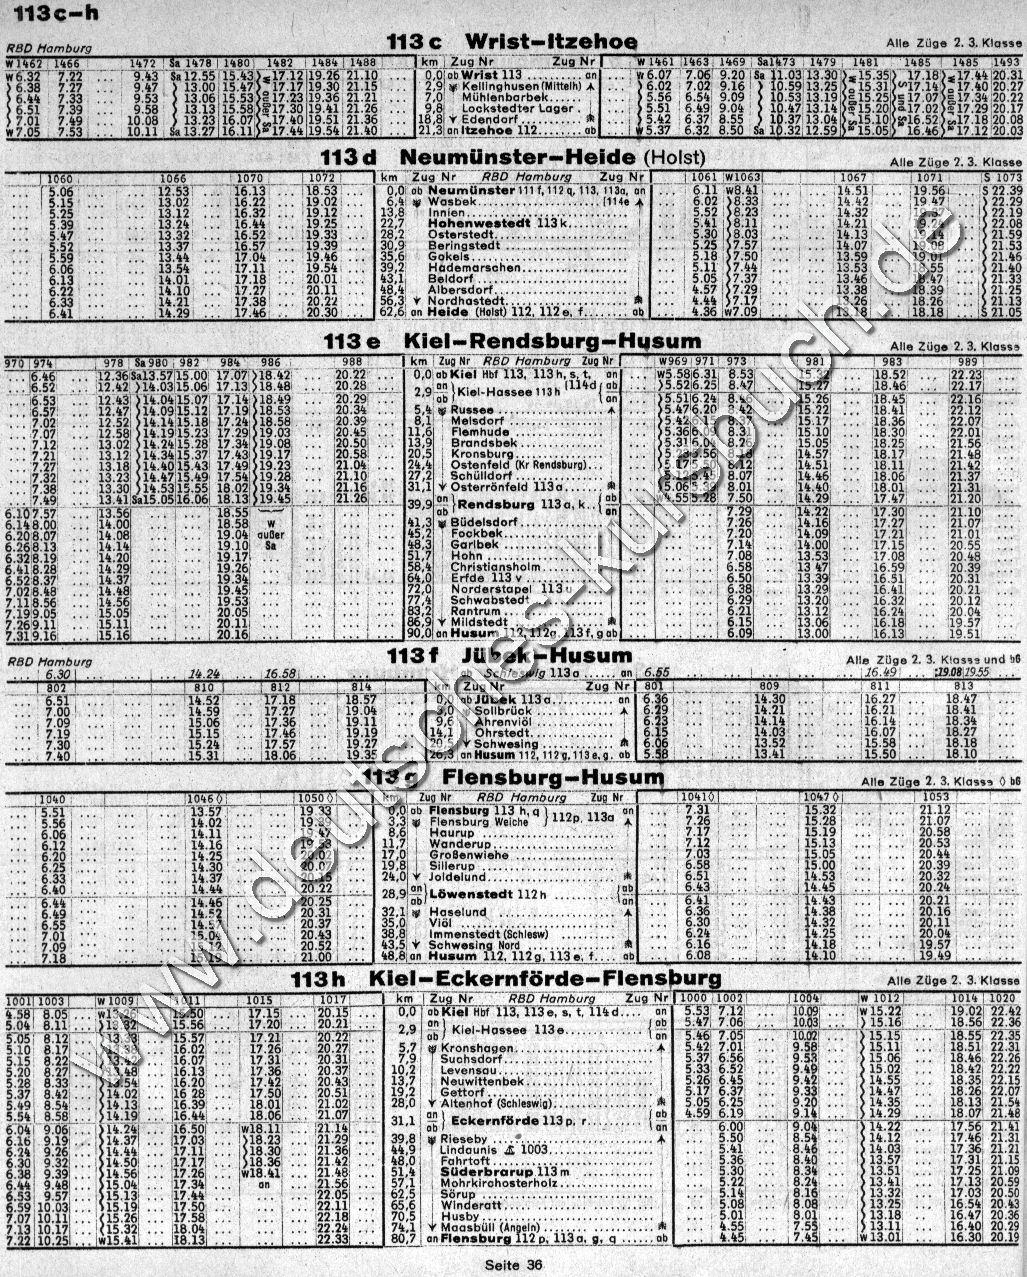 113 c-h
113 c Wrist-Itzehoe
RBD Hamburg
Alle Züge 2. 3. Klasse
W 1462 1466 1472 Sa 1478 1480 1482 1484 1488 km Zug Nr RBD Hamburg Zug Nr W 1461 1463 1469 Sa1473 1479 1481 1485 1485 1493
W 6.32 7.22 9.43 Sa 12.55 15.43 17.12 19.26 21.10 0,0 ab Wrist 113 an W 6.07 7.06 9.20 Sa 11.03 13.30 15.35 17.18 17.44 20.31
6.38 7.27 9.47 13.00 15.47 17.17 19.30 21.15 2,9 Kellinghusen (Mittelh) 6.02 7.02 9.16 10.59 13.25 15.31 17.14 17.40 20.27
6.44 7.33 9.53 13.06 15.53 17.23 19.36 21.21 7,0 Mühlenbarbek 5.56 6.54 9.09 10.53 13.19 15.25 17.07 17.34 20.22
6.51 7.39 9.58 13.13 15.58 17.30 19.41 21.26 9,8 Lockstedter Lager 5.51 6.49 9.04 10.47 13.14 15.20 17.02 17.29 20.17
7.01 7.49 10.08 13.23 16.07 17.40 19.51 21.36 18,8 Edendorf 5.42 6.37 8.55 10.37 13.04 15.10 16.52 17.18 20.08
W 7.05 7.53 10.11 Sa 13.27 16.11 17.44 19.54 21.40 21,3 an Itzehoe 112 ab W 5.37 6.32 8.50 Sa 10.32 12.59 15.05 16.46 17.12 20.03
113 d Neumünster-Heide (Holst)
Alle Züge 2. 3. Klasse
1060 1066 1070 1072 km Zug Nr RBD Hamburg Zug Nr 1061 W1063 1067 1071 S 1073
5.06 12.53 16.13 18.53 0,0 ab Neumünster 111 f, 112 q, 113, 113a, an 6.11 W8.41 14.51 19.56 S 22.39
5.15 13.02 16.22 19.02 6,4 Wasbek [114e 6.02 8.33 14.42 19.47 22.29
5.25 13.12 16.32 19.12 13,8 Innien 5.52 8.23 14.32 22.19
5.39 13.24 16.44 19.25 22,7 Hohenwestedt 113 k 5.41 8.11 14.21 22.08
5.47 13.32 16.52 19.33 28,2 Osterstedt 5.30 8.03 14.13 21.59
5.52 13.37 16.57 19.39 30,9 Beringstedt 5.25 7.57 14.07 21.53
5.59 13.44 17.04 19.46 35,6 Gokels 5.18 7.50 13.59 19.01 21.46
6.06 13.54 17.11 19.54 39,2 Hademarschen 5.11 7.44 13.53 18.55 21.40
6.13 14.01 17.18 20.01 43,1 Beldorf 5.05 7.37 13.46 18.47 21.33
6.22 14.10 17.27 20.10 48,4 Albersdorf 4.57 7.29 13.38 18.39 21.25
6.33 14.21 17.38 20.22 56,3 Nordhastedt 4.44 7.17 13.26 18.26 21.13
6.41 14.29 17.46 20.30 62,6 an Heide (Holst) 112, 112 e, f ab 4.36 W7.09 13.18 18.18 S 21.05
113 e Kiel-Rendsburg-Husum
Alle Züge 2. 3. Klasse
970 974 978 Sa 980 982 984 986 988 km Zug Nr RBD Hamburg Zug Nr W969 971 973 981 983 989
6.46 12.36 Sa13.57 15.00 17.07 18.42 20.22 0,0 ab Kiel Hbf 113, 113 h, s, t, an W5.58 6.31 8.53 18.52 22.23
6.52 12.42 14.03 15.06 17.13 18.48 20.28 2,9 an Kiel-Hassee 113 h [114 d ab 5.52 6.25 8.47 15.27 18.46 22.17
6.53 12.43 14.04 15.07 17.14 18.49 20.29 ab an 5.51 6.24 8.46 15.26 18.45 22.16
6.57 12.47 14.09 15.12 17.19 18.53 20.34 5,4 Russee 5.47 6.20 8.42 15.21 18.41 22.12
7.02 12.52 14.14 15.18 17.24 18.58 20.39 8,1 Melsdorf 15.17 18.36 22.07
7.07 12.58 14.19 15.23 17.29 19.03 20.45 11,6 Flemhude 15.10 18.30 22.01
7.12 13.02 14.24 15.28 17.34 19.08 20.50 13,9 Brandsbek 15.05 18.25 21.56
7.21 13.12 14.34 15.37 17.43 19.17 20.58 20,5 Kronsburg 14.57 18.17 21.48
7.27 13.18 14.40 15.43 17.49 19.23 21.04 24,4 Ostenfeld (Kr Rendsburg) 14.51 18.11 21.42
7.32 13.23 14.47 15.49 17.54 19.28 21.10 27,2 Schülldorf 8.07 14.46 18.06 21.37
7.38 13.30 14.53 15.55 18.02 19.34 21.16 31,1 Osterrönfeld 113 a 8.01 14.40 18.01 21.31
7.49 13.41 Sa15.05 16.06 18.13 19.45 21.26 39,9 an Rendsburg 113 a, k ab 7.50 14.29 17.47 21.20
6.10 7.57 13.56 18.55 ab an 7.29 14.22 17.30 21.10
6.14 8.00 14.00 18.58 W 41,3 Büdelsdorf 7.26 14.16 17.27 21.07
6.20 8.07 14.08 19.04 außer 45,2 Fockbek 7.20 14.09 17.21 21.01
6.26 8.13 14.14 19.10 Sa 48,3 Garlbek 7.14 14.00 17.15 20.55
6.32 8.19 14.20 19.17 51,7 Hohn 7.08 13.53 17.08 20.48
6.41 8.28 14.29 19.26 58,4 Christiansholm 6.58 13.47 16.59 20.39
6.52 8.37 14.37 19.34 64,0 Erfde 113 v 6.50 13.39 16.51 20.31
7.02 8.48 14.48 19.45 72,0 Norderstapel 113 u 6.38 13.29 16.41 20.21
7.11 8.56 14.56 19.53 77,4 Schwabstedt 6.29 13.20 16.32 20.12
7.19 9.05 15.05 20.05 83,2 Rantrum 6.21 13.12 16.24 20.04
7.26 9.11 15.11 20.11 86,9 Mildstedt 6.15 13.06 16.18 19.57
7.31 9.16 15.16 20.16 90,0 an Husum 112, 112g, 113 f, g ab 6.09 13.00 16.13 19.51
113 f Jübek-Husum
RBD Hamburg
Alle Züge 2. 3. Klasse und b6
6.30 14.24 16.58 ab Schleswig 113 a an 6.55 16.49 19.08 19.55
802 810 812 814 km Zug Nr Zug Nr 801 809 811 813
6.51 14.52 17.18 18.57 0,0 ab Jübek 113 a an 6.36 14.30 16.27 18.47
7.00 14.59 17.27 19.04 Sollbrück 6.29 14.21 16.21 18.41
7.09 15.06 17.36 19.11 9,6 Ahrenviöl 6.23 14.14 16.14 18.34
7.19 15.15 17.46 19.19 14,1 Ohrstedt 6.15 14.03 16.07 18.27
7.30 15.24 17.57 19.27 20,5 Schwesing 6.06 13.52 15.58 18.18
7.40 15.31 18.06 19.35 26,3 an Husum 112, 112 g, 113 e, g. ab 5.58 13.41 15.50 18.10
113 g Flensburg-Husum
Alle Züge 2. 3. Klasse ◊ b6
1040 1046◊ 1050◊ km Zug Nr RBD Hamburg Zug Nr 1041◊ 1047◊ 1053
5.51 13.57 19.33 0,0 ab Flensburg 113 h, q 112p, 113a an 7.31 15.32 21.12
5.56 14.02 3,3 Flensburg Weiche 7.26 15.28 21.07
6.06 14.11 8,6 Haurup 7.17 15.19 20.58
6.12 14.16 11,7 Wanderup 7.12 15.13 20.53
6.20 14.25 17,0 Großenwiehe 7.03 15.05 20.44
6.25 14.30 19,8 Sillerup 6.58 15.00 20.39
6.33 14.37 24,0 Joldelund 6.51 14.53 20.32
6.40 14.44 20.22 28,9 an Löwenstedt 112 h ab 6.43 14.45 20.24
6.44 14.46 20.25 ab an 6.41 14.43 20.21
6.49 14.52 20.31 32,1 Haselund 6.36 14.38 20.16
6.55 20.37 35,0 Viöl 6.30 14.32 20.11
7.01 15.04 20.43 38,8 Immenstedt (Schlesw) 6.24 14.25 20.04
7.09 20.52 43,5 Schwesing Nord 6.16 14.18 19.57
7.18 21.00 48,8 an Husum 112, 112 g, 113 e, f ab 6.08 14.10 19.49
113 h Kiel-Eckernförde-Flensburg
Alle Züge 2. 3. Klasse
1001 1003 W 1009 1011 1015 1017 km Zug Nr RBD Hamburg Zug Nr 1000 1002 1004 W 1012 1014 1020
4.58 8.05 17.15 20.15 0,0 ab Kiel 113, 113 e, s, t, 114 d an 5.53 7.12 10.09 W 15.22 19.02 22.42
5.04 8.11 15.56 17.20 20.21 2,9 an Kiel-Hassee 113 e ab 5.47 7.06 10.03 15.16 18.56 22.36
5.05 8.12 15.57 17.21 20.22 ab an 5.46 7.05 10.02 15.15 18.55 22.35
5.10 8.17 16.02 17.26 20.27 5,7 Kronshagen 5.42 7.01 9.58 15.11 18.51 22.31
5.15 8.22 16.07 17.31 20.31 7,9 Suchsdorf 5.37 6.56 9.53 15.06 18.46 22.26
5.20 8.27 16.13 17.36 20.37 10,2 Levensau 5.33 6.52 9.49 15.02 18.42 22.22
5.28 8.33 16.20 17.42 20.43 13,7 Neuwittenbek 5.26 6.45 9.42 14.55 18.35 22.15
5.37 8.42 14.02 16 28 17.50 20.51 19,2 Gettorf 5.17 6.37 9.33 14.47 18.26 22.07
5.49 8.54 14.13 16.39 18.01 21.02 28,0 Altenhof (Schleswig) 5.05 6.25 9.20 14.35 18.13 21.54
5.54 8.58 14.19 16.44 18.06 21.07 31,1 an Eckernförde 113 p, r ab 4.59 6.19 9.14 14.29 18.07 21.48
6.04 9.06 14.24 16.50 W18.11 21.14 ab an 6.00 9.04 14.22 17.56 21.41
6.16 9.19 14.37 17.03 18.23 21.29 39,8 Rieseby 5.50 8.54 14.12 17.46 21.31
6.24 9.26 14.44 17.11 18.30 21.36 44,9 Lindaunis 1003 5.41 8.46 14.03 17.36 21.21
6.30 9.32 14.50 17.17 18.36 21.42 48,0 Fahrtoft 5.36 8.40 13.57 17.31 21.15
6.38 9.39 14.56 17.26 W18.41 21.48 51,4 Süderbrarup 113 m 5.30 8.34 13.51 17.25 21.09
6.44 9.48 15.04 17.34 an 21.56 57,1 Mohrkirchosterholz 5.22 8.24 13.41 17.13 20.59
6.53 9.57 15.13 17.44 22.05 62,5 Sörup 5.14 8.16 13.32 17.03 20.50
6.59 10.03 15.19 17.50 22.11 65,6 Winderatt 5.08 8.08 13.25 16.54 20.43
7.07 10.11 15.26 17.58 22.18 70,5 Husby 5.01 8.01 13.18 16.47 20.36
7.13 10.17 15.32 18.04 22.24 74,1 Maasbüll (Angeln) 4.55 7.55 13.11 16.40 20.29
7.22 10.25 W15.41 18.13 22.33 80,7 an Flensburg 112 p, 113 a, g, q ab 4.45 7.45 W 13.01 16.30 20.19
Seite 36
www.deutsches-kursbuch.de